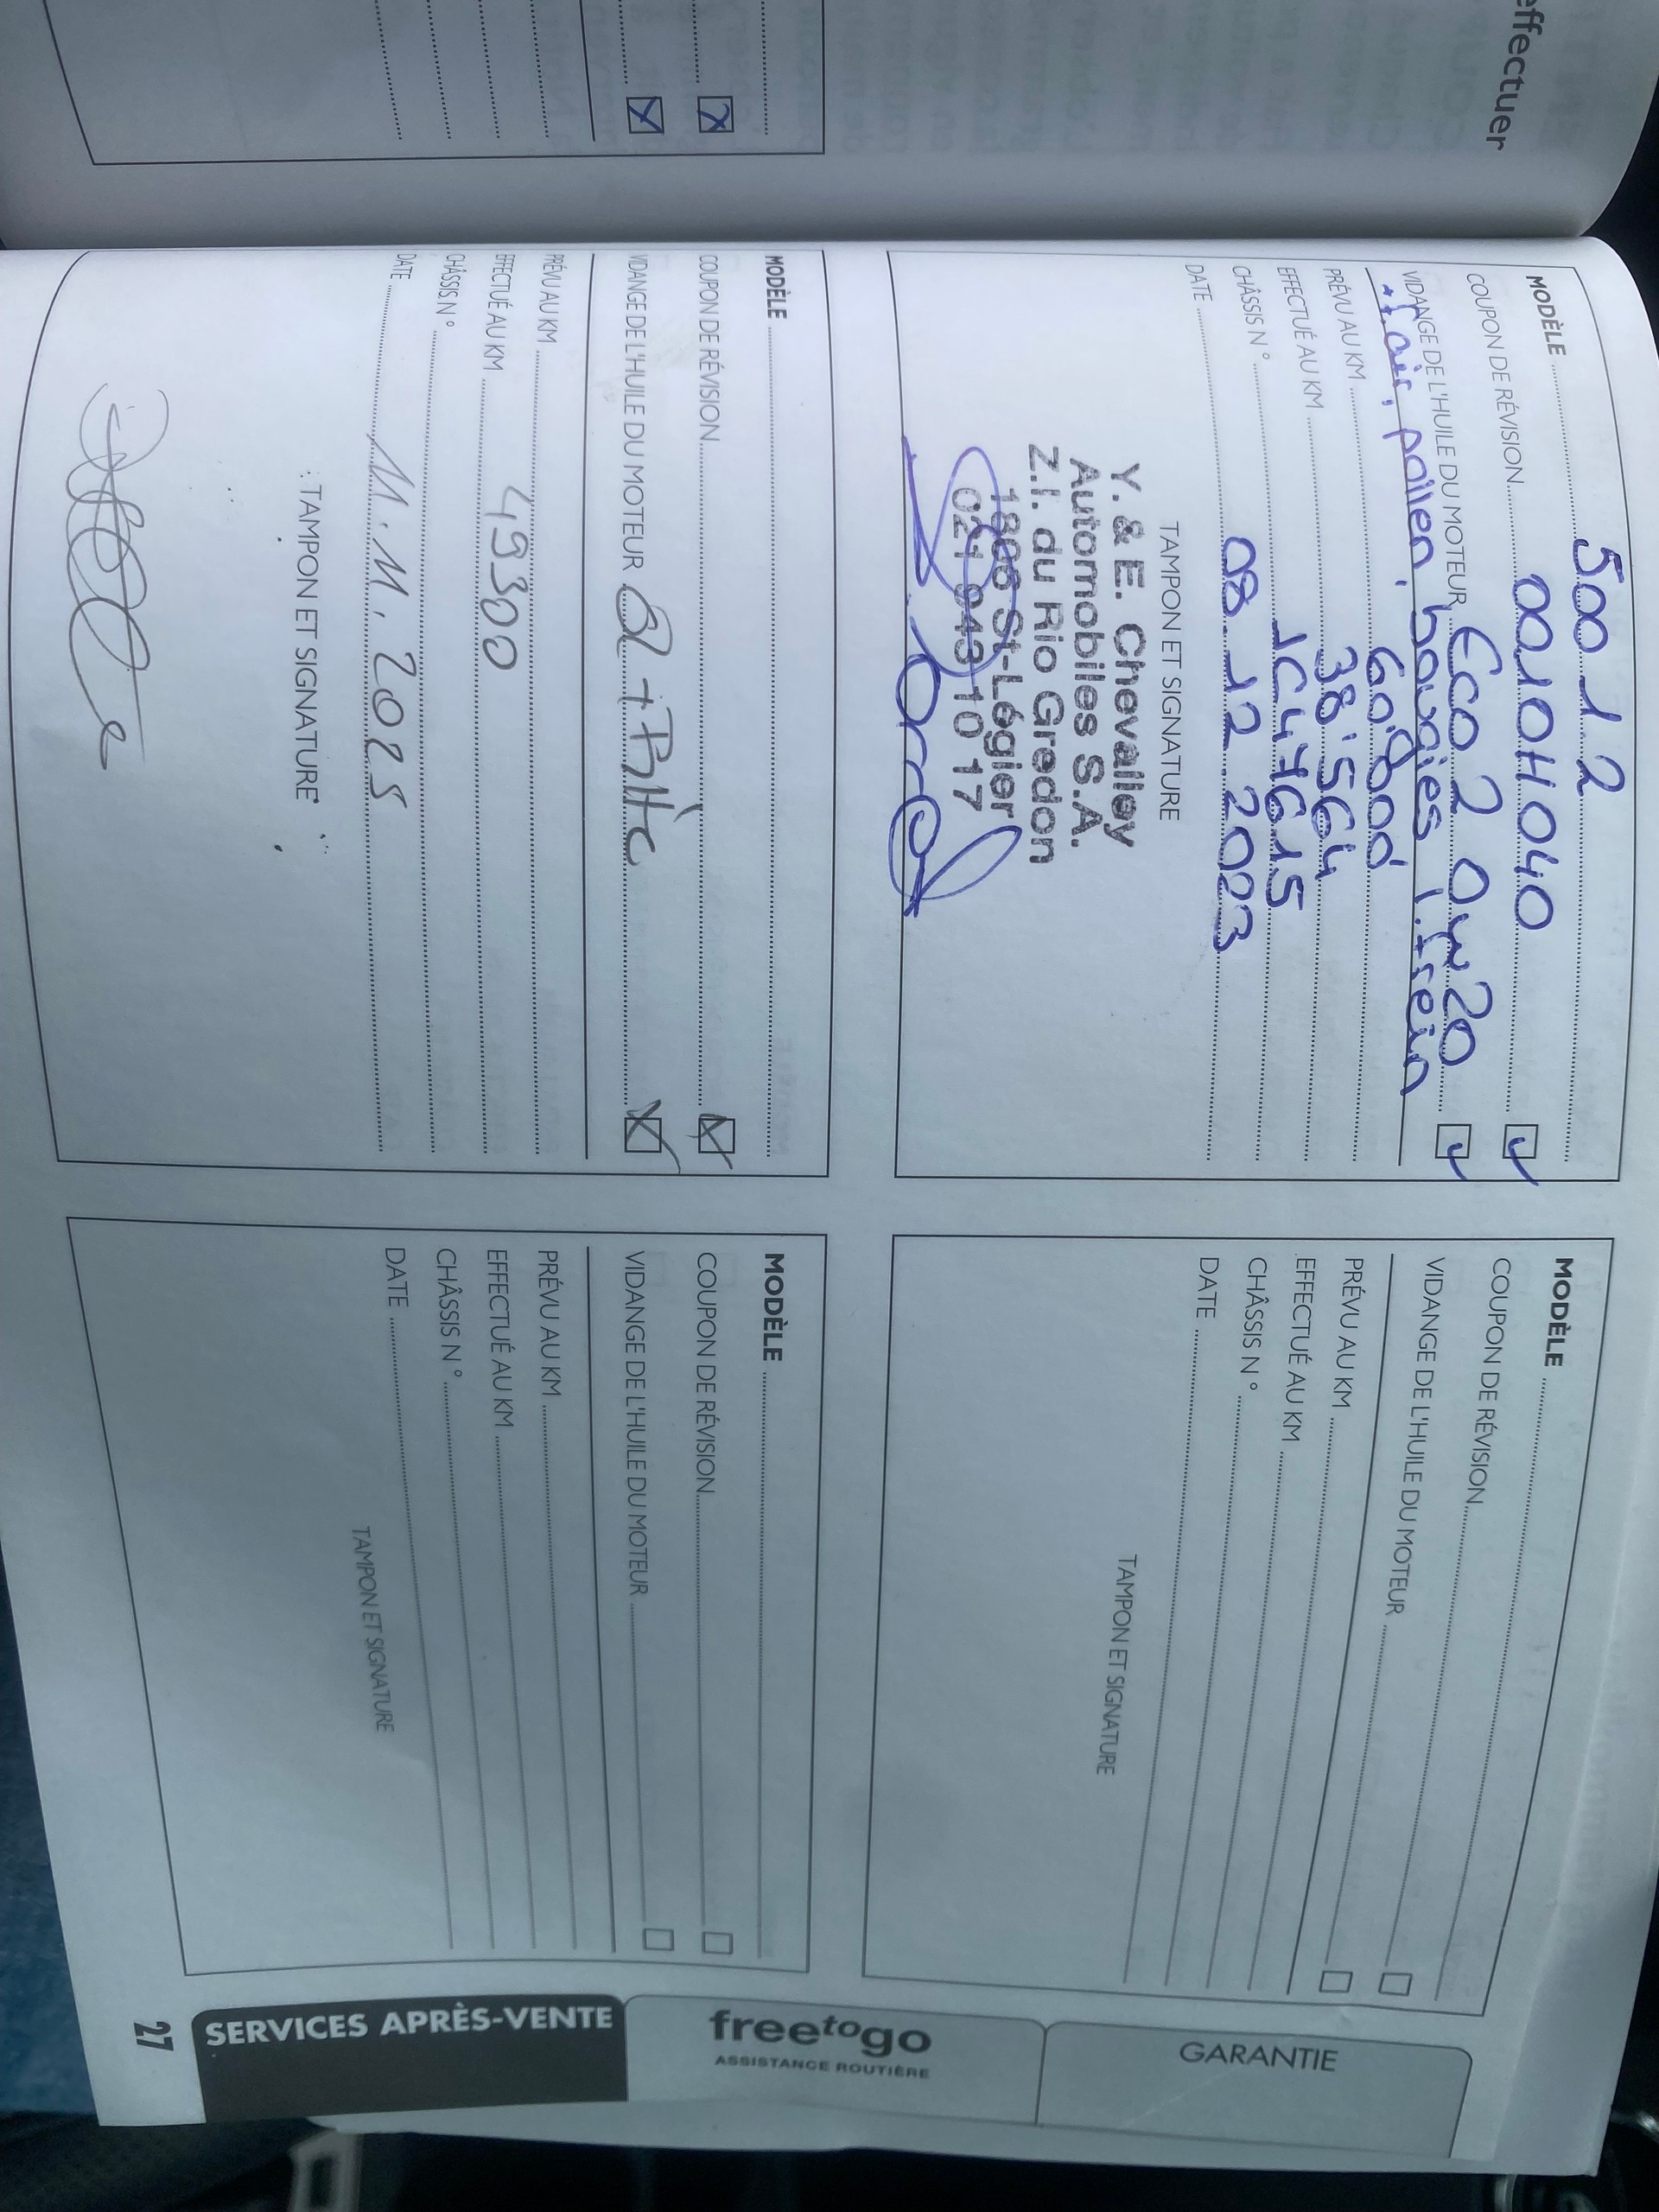 effectuer
MODÈLE 500 1.2
COUPON DE RÉVISION 0010H040
VIDANGE DE L'HUILE DU MOTEUR Eco 2 0w20
+ f.air, pollen, bougies l.frein
PRÉVU AU KM 60'000
EFFECTUÉ AU KM 38'564
CHÂSSIS N° JC447615
DATE 08.12.2023
TAMPON ET SIGNATURE
Y. & E. Chevalley
Automobiles S.A.
Z.I. du Rio Gredon
1806 St-Légier
021 943 10 17
MODÈLE
COUPON DE RÉVISION
VIDANGE DE L'HUILE DU MOTEUR
PRÉVU AU KM
EFFECTUÉ AU KM 49300
CHÂSSIS N°
DATE 11.11.2025
TAMPON ET SIGNATURE
MODÈLE
COUPON DE RÉVISION
VIDANGE DE L'HUILE DU MOTEUR
PRÉVU AU KM
EFFECTUÉ AU KM
CHÂSSIS N°
DATE
TAMPON ET SIGNATURE
MODÈLE
COUPON DE RÉVISION
VIDANGE DE L'HUILE DU MOTEUR
PRÉVU AU KM
EFFECTUÉ AU KM
CHÂSSIS N°
DATE
TAMPON ET SIGNATURE
GARANTIE
freetogo
ASSISTANCE ROUTIÈRE
SERVICES APRÈS-VENTE
27